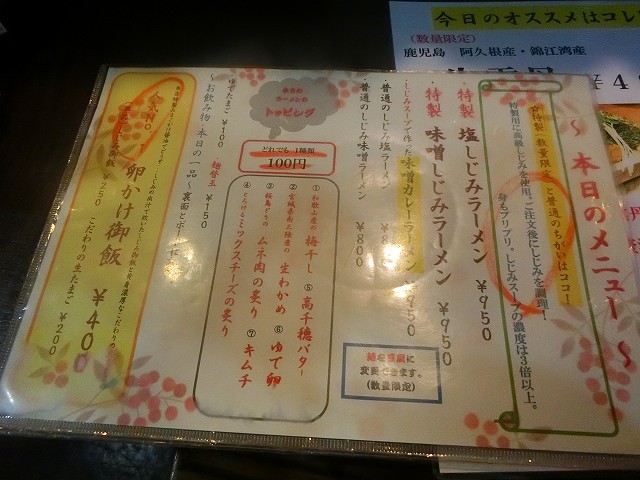 今日のオススメはコレ
(数量限定)
鹿児島 阿久根産・錦江湾産
¥4
～本日のメニュー～
☆特製 数量限定 と普通のちがいはココ!
特製用に高級しじみを使用。ご注文後にしじみを調理!
身もプリプリ。しじみスープの濃度は3倍以上。
・特製 塩しじみラーメン ¥950
・特製 味噌しじみラーメン ¥950
・しじみスープで作った味噌カレーラーメン ¥950
・普通のしじみ塩ラーメン ¥800
・普通のしじみ味噌ラーメン ¥800
麺を蒟蒻に
変更できます。
(数量限定)
本日の
ラーメンの
トッピング
どれでも 1種類
100円
①和歌山産の梅干し ⑤高千穂バター
②宮城県南三陸産の生わかめ ⑥ゆで卵
③桜島どりのムネ肉の炙り ⑦キムチ
④とろけるミックスチーズの炙り
ゆでたまご ¥100 麺替玉 ¥150
～お飲み物・本日の一品～裏面とボード
人気No.1 卵かけ御飯 ¥40
しじみ御飯 ¥250 こだわりの生たまご ¥200